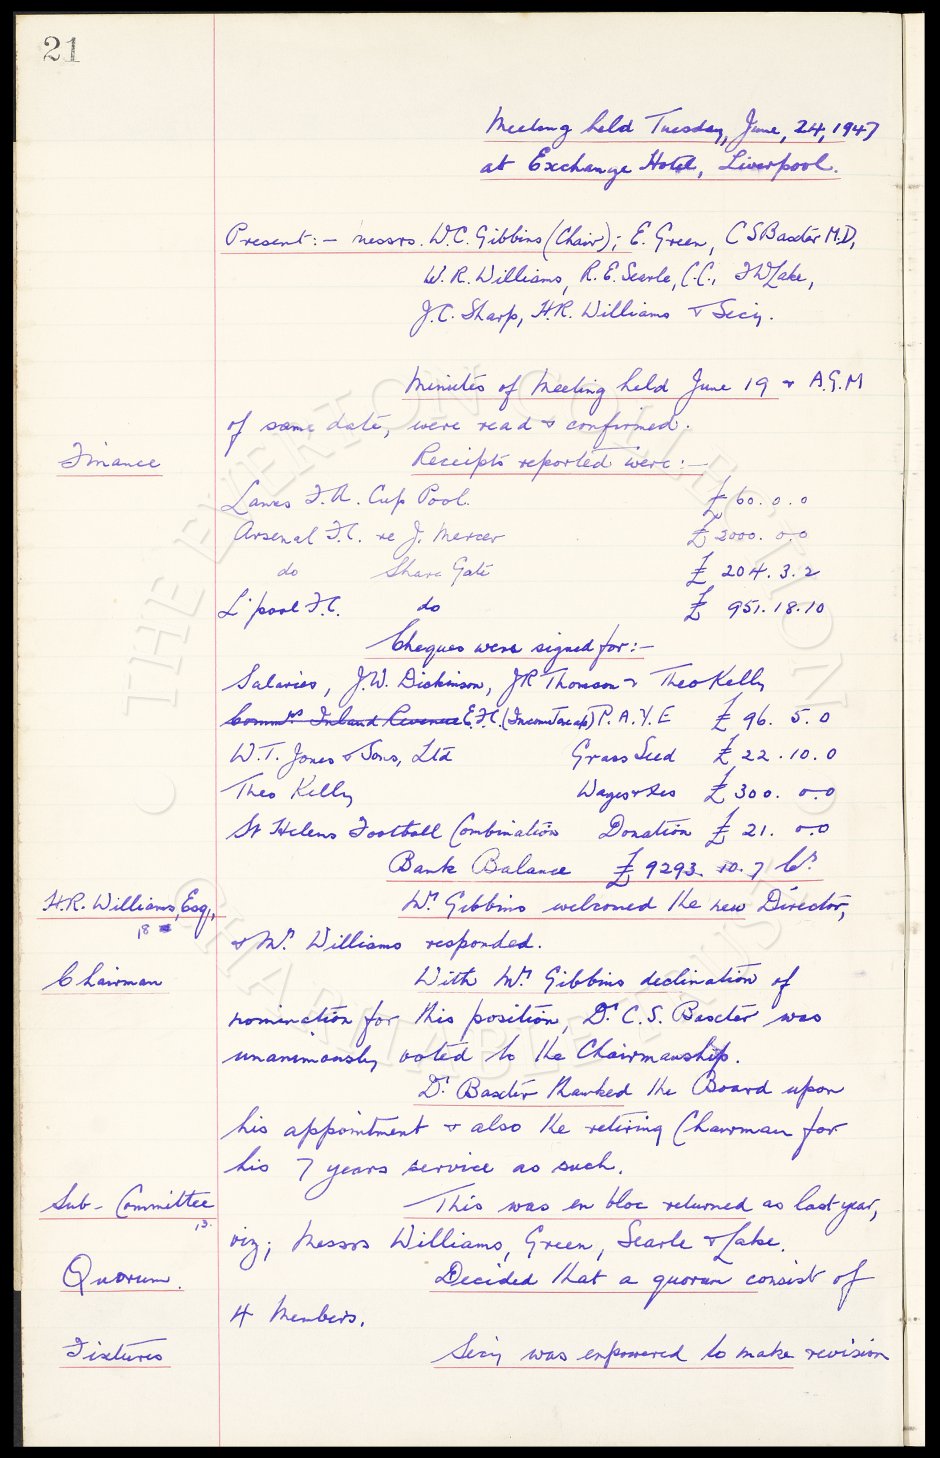 21
Meeting held Tuesday, June, 24, 1947
at Exchange Hotel, Liverpool.
Present:- Messrs. W.C. Gibbins (Chair); E. Green, C S Baxter M.D,
W.R. Williams, R.E. Searle, C.C., F W Lake,
J.C. Sharp, H.R. Williams & Secy.
Minutes of Meeting held June 19 & A.G.M
of same date, were read & confirmed.
Finance
Receipts reported were:-
Lancs F.A. Cup Pool. £ 60. 0. 0
Arsenal F.C. re J. Mercer £ 2000. 0.0
do Share Gate £ 204. 3. 2
L'pool F.C. do £ 951. 18. 10
Cheques were signed for:-
Salaries, J.W. Dickinson, JR Thomson & Theo Kelly
Commrs Inland Revenue E.F.C. (Income Tax a/c) P. A. Y. E £ 96. 5. 0
W.T. Jones & Sons, Ltd Grass Seed £ 22. 10. 0
Theo Kelly Wages & Xes £ 300. 0.0
St Helens Football Combination Donation £ 21. 0.0
Bank Balance £ 9293. 10. 7 Cr.
H.R. Williams, Esq,
Mr Gibbins welcomed the new Director,
18
& Mr. Williams responded.
Chairman
With Mr Gibbins declination of
nomination for this position, Dr C.S. Baxter was
unanimously voted to the Chairmanship.
Dr Baxter thanked the Board upon
his appointment & also the retiring Chairman for
his 7 years service as such.
Sub-Committee
This was en bloc returned as last year,
13.
viz; Messrs Williams, Green, Searle & Lake.
Quorum.
Decided that a quorum consist of
4 Members.
Fixtures
Secy was empowered to make revision
THE EVERTON COLLECTION
CHARITABLE TRUST